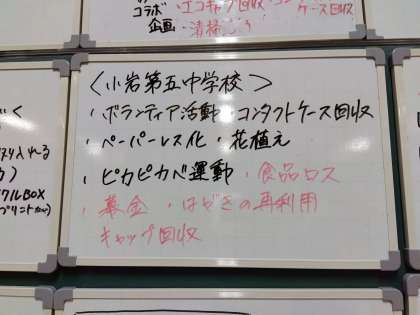 コラボ エコキャップ回収
企画 ケース回収
清掃
<小岩第五中学校>
・ボランティア活動・コンタクトケース回収
・ペーパーレス化・花植え
・ピカピカペ運動・食品ロス
・募金・はがきの再利用
キャップ回収
入れる
クルBOX
プリント